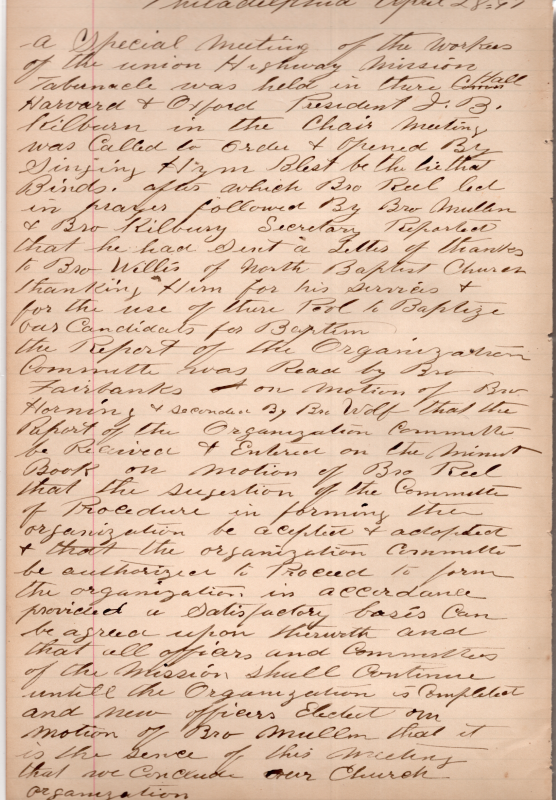 Philadelphia April 28-97
a Special meeting of the workers
of the union Highway Mission
Tabernacle was held in there Hall
Harvard & Oxford President J. B.
Kilburn in the Chair meeting
was Called to order & opened By
Singing Hym Blest be the tie that
Binds. after which Bro Reel led
in prayer followed By Bro Mullin
& Bro Kilbury Secretary Reported
that he had Sent a Letter of thanks
to Bro Willis of North Baptist Church
thanking Him for his Services &
for the use of there Pool to Baptize
our Candidats for Baptism
the Report of the Organization
Committe was Read by Bro
Fairbanks & on motion of Bro
Horning & seconded By Bro Wolf that the
Report of the Organization Committe
be Recived & Entered on the minut
Book on motion of Bro Reel
that the sugestion of the Committe
of Procedure in forming the
organization be acepted & adopted
& that the organization Committe
be authorized to Proceed to form
the organization in accordance
provided a Satisfactory basis Can
be agreed upon therewith and
that all officers and Committees
of the Mission shall Continue
untill the Organization is Completed
and new officers Elected on
motion of Bro Mullin that it
is the sence of this Meeting
that we Conclude our Church
organization